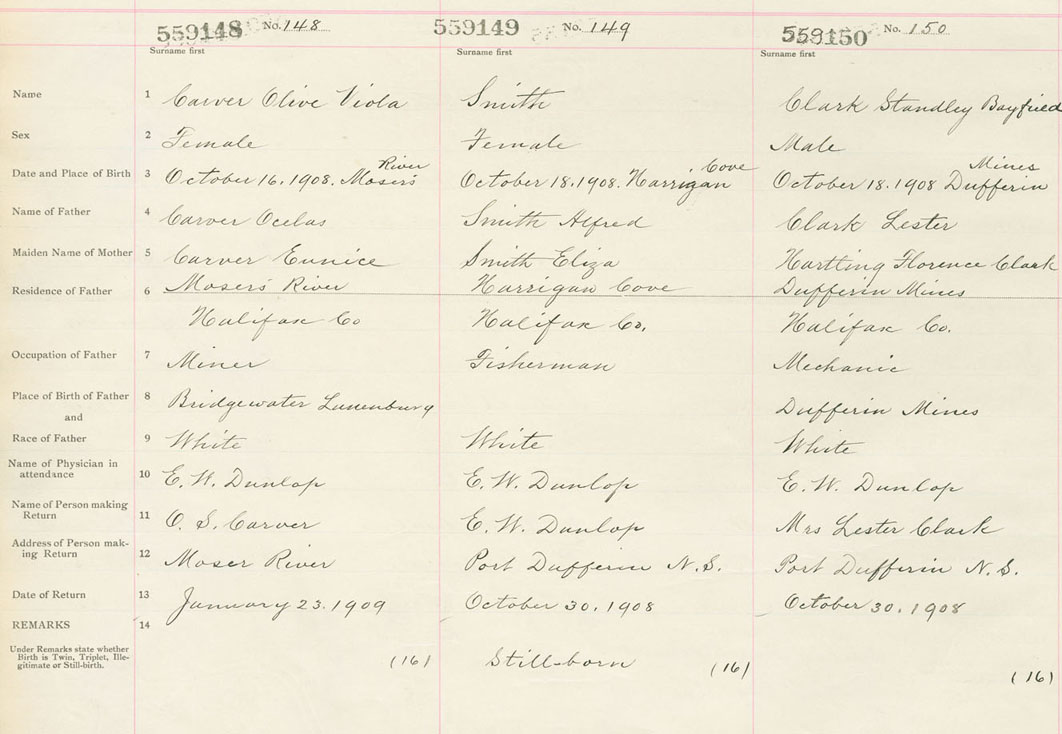 559148 No. 148 559149 No. 149 559150 No. 150
Surname first Surname first Surname first
Name 1 Carver Olive Viola Smith Clark Standley Bayfield
Sex 2 Female Female Male
River Cove Mines
Date and Place of Birth 3 October 16. 1908. Mosers October 18. 1908. Harrigan October 18. 1908 Dufferin
Name of Father 4 Carver Ocelas Smith Alfred Clark Lester
Maiden Name of Mother 5 Carver Eunice Smith Eliza Hartling Florence Clark
Residence of Father 6 Moser's River Harrigan Cove Dufferin Mines
Halifax Co Halifax Co. Halifax Co.
Occupation of Father 7 Miner Fisherman Mechanic
Place of Birth of Father 8 Bridgewater Lunenburg Dufferin Mines
and
Race of Father 9 White White White
Name of Physician in
attendance 10 E. W. Dunlop E. W. Dunlop E. W. Dunlop
Name of Person making
Return 11 O. S. Carver E. W. Dunlop Mrs Lester Clark
Address of Person mak-
ing Return 12 Moser River Port Dufferin N.S. Port Dufferin N.S.
Date of Return 13 January 23. 1909 October 30. 1908 October 30. 1908
REMARKS 14
Under Remarks state whether
Birth is Twin, Triplet, Ille-
gitimate or Still-birth.
(16) Still-born (16) (16)